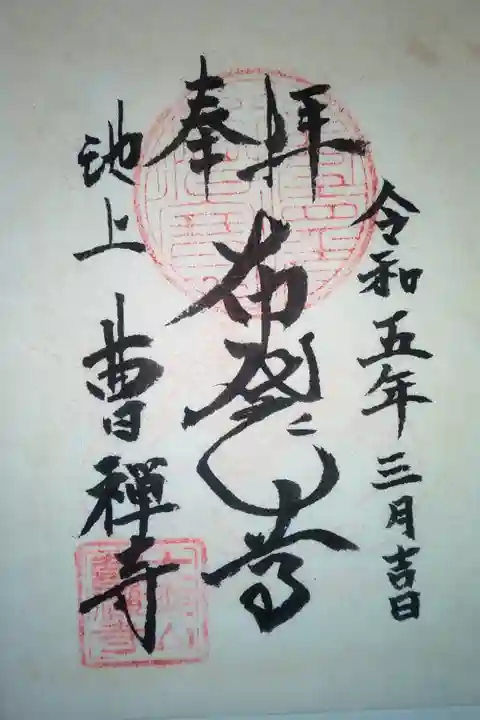 令和五年三月吉日
奉拝
布袋尊
池上
曹禅寺